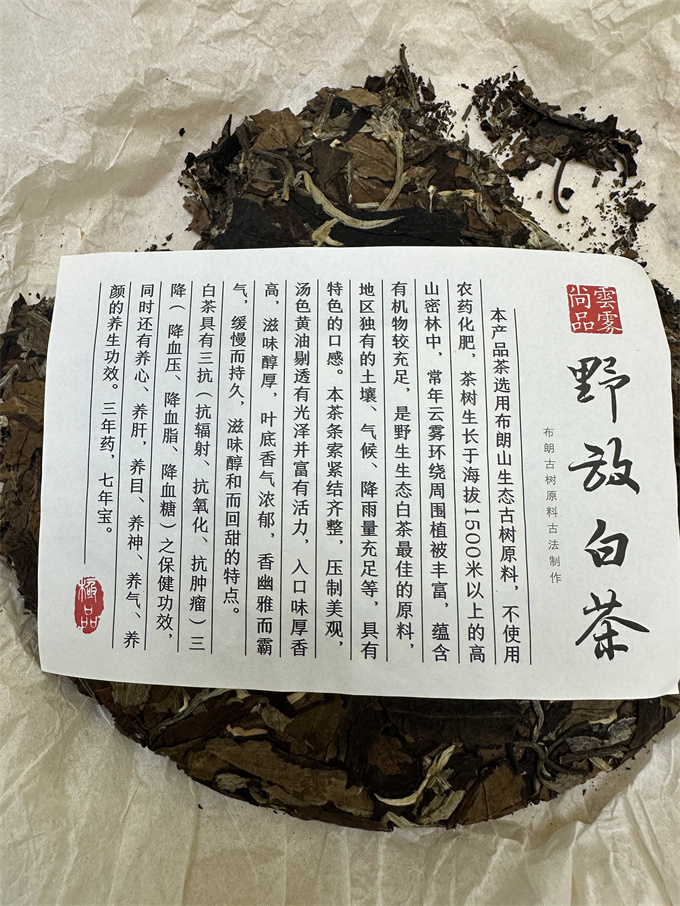 雲雾
尚品
野放白茶
布朗古树原料古法制作
本产品茶选用布朗山生态古树原料，不使用
农药化肥，茶树生长于海拔1500米以上的高
山密林中，常年云雾环绕周围植被丰富，蕴含
有机物较充足，是野生生态白茶最佳的原料，
地区独有的土壤、气候、降雨量充足等，具有
特色的口感。本茶条索紧结齐整，压制美观，
汤色黄油剔透有光泽并富有活力，入口味厚香
高，滋味醇厚，叶底香气浓郁，香幽雅而霸
气，缓慢而持久，滋味醇和而回甜的特点。
白茶具有三抗（抗辐射、抗氧化、抗肿瘤）三
降（降血压、降血脂、降血糖）之保健功效，
同时还有养心、养肝，养目、养神、养气、养
颜的养生功效。三年药，七年宝。
極品